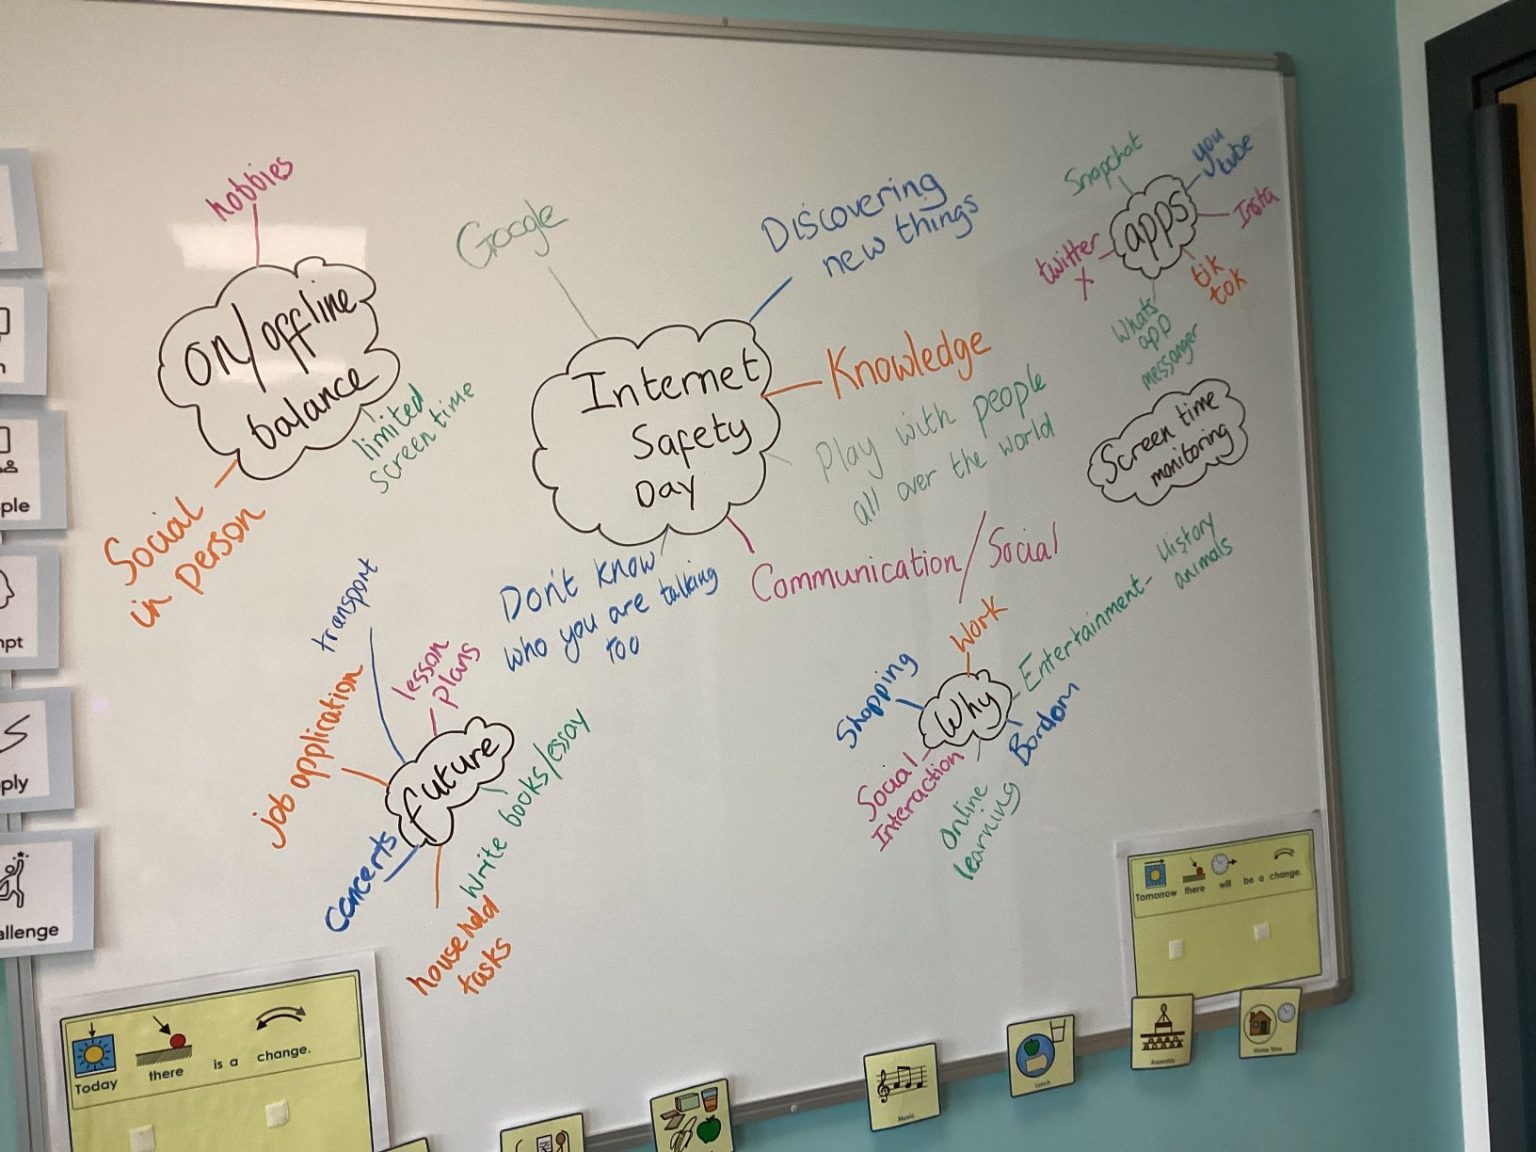 hobbies
on/offline
balance
limited
screen time
Social
in person
Google
Discovering
new things
Internet
Safety
Day
Knowledge
Play with people
all over the world
Communication/Social
Don't know
who you are talking
too
Snapchat
you
tube
apps
Insta
twitter
X
tik
tok
Whats
app
messanger
Screen time
monitoring
transport
lesson
plans
job application
future
write books/essay
concerts
household
tasks
Work
Shopping
Why
Entertainment- History
animals
Bordom
Social
Interaction
Online
learning
ple
mpt
ply
allenge
Today there is a change.
Tomorrow there will be a change.
Music
Lunch
Assembly
Home Time